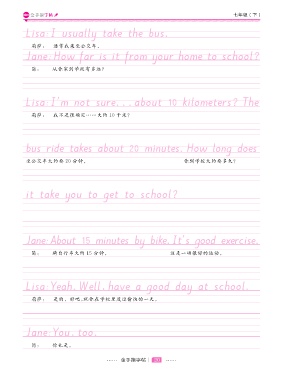 七年级(下)
Lisa: I usually take the bus.
莉萨: 通常我乘坐公交车。
Jane: How far is it from your home to school?
简: 从你家到学校有多远?
Lisa: I'm not sure... about 10 kilometers? The
莉萨: 我不是很确定……大约 10 千米?
bus ride takes about 20 minutes. How long does
坐公交车大约要 20 分钟。 你到学校大约要多久?
it take you to get to school?
Jane: About 15 minutes by bike. It's good exercise.
简: 骑自行车大约 15 分钟。 这是一项很好的运动。
Lisa: Yeah. Well, have a good day at school.
莉萨: 是的。好吧,祝你在学校里度过愉快的一天。
Jane: You, too.
简: 你也是。